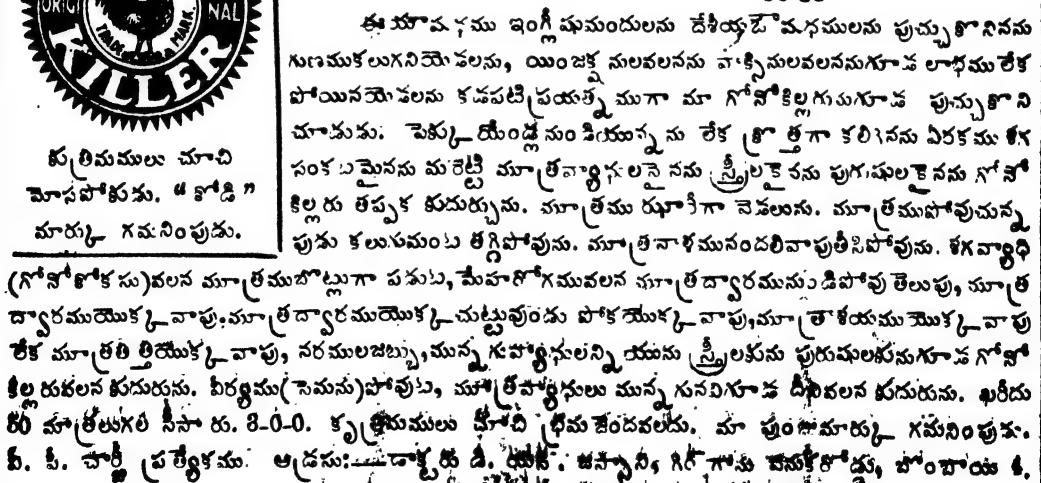 ORIGI NAL
TRADE MARK
KILLER
కృత్రిమములు చూచి
మోసపోకుడు. “కోడి”
మార్కు గమనింపుడు.
ఇంగ్లీషుమందులను దేశీయఔషధములను పుచ్చుకొనినను
గుణముకలుగనియెడలను, యింజక్షనులవలనను వాక్సినులవలననుగూడ లాభములేక
పోయినయెడలను కడపటిప్రయత్నముగా మా గోనోకిల్లరునుగూడ పుచ్చుకొని
చూడుడు. పెక్కుయేండ్లనుండియున్నను లేక క్రొత్తగా కలిగినను ఏరకము శగ
సంకటమైనను మరెట్టి మూత్రవ్యాధులనైనను స్త్రీలకైనను పురుషులకైనను గోనో
కిల్లరు తప్పక కుదుర్చును. మూత్రము ఝారీగా వెడలును. మూత్రముపోవుచున్న
పుడు కలుగుమంట తగ్గిపోవును. మూత్రనాళమునందలివాపుతీసిపోవును. శగవ్యాధి
(గోనోకోకసు)వలన మూత్రముబొట్లుగా పడుట, మేహరోగమువలన మూత్రద్వారమునుండిపోవు తెలుపు, మూత్ర
ద్వారముయొక్క వాపు, మూత్రద్వారముయొక్క చుట్టువుండు పోకయొక్క వాపు, మూత్రాశయముయొక్క వాపు
లేక మూత్రతిత్తియొక్క వాపు, నరములజబ్బు, మున్నగువ్యాధులన్నియును స్త్రీలకును పురుషులకునుగూడ గోనో
కిల్లరువలన కుదురును. వీర్యము(సెమను)పోవుట, మూత్రవ్యాధులు మున్నగునవిగూడ దీనివలన కుదురును. ఖరీదు
౫౦ మాత్రలుగల సీసా రు. 3-0-0. కృత్రిమములు చూచి భ్రమజెందవలదు. మా పుంజుమార్కు గమనింపుడు.
వీ. పీ. చార్జీ ప్రత్యేకము. ఆడ్రసు:—డాక్టరు డి. యన్. జస్సాని, గిర్‌గాము వెనుకరోడ్డు, బొంబాయి 4.